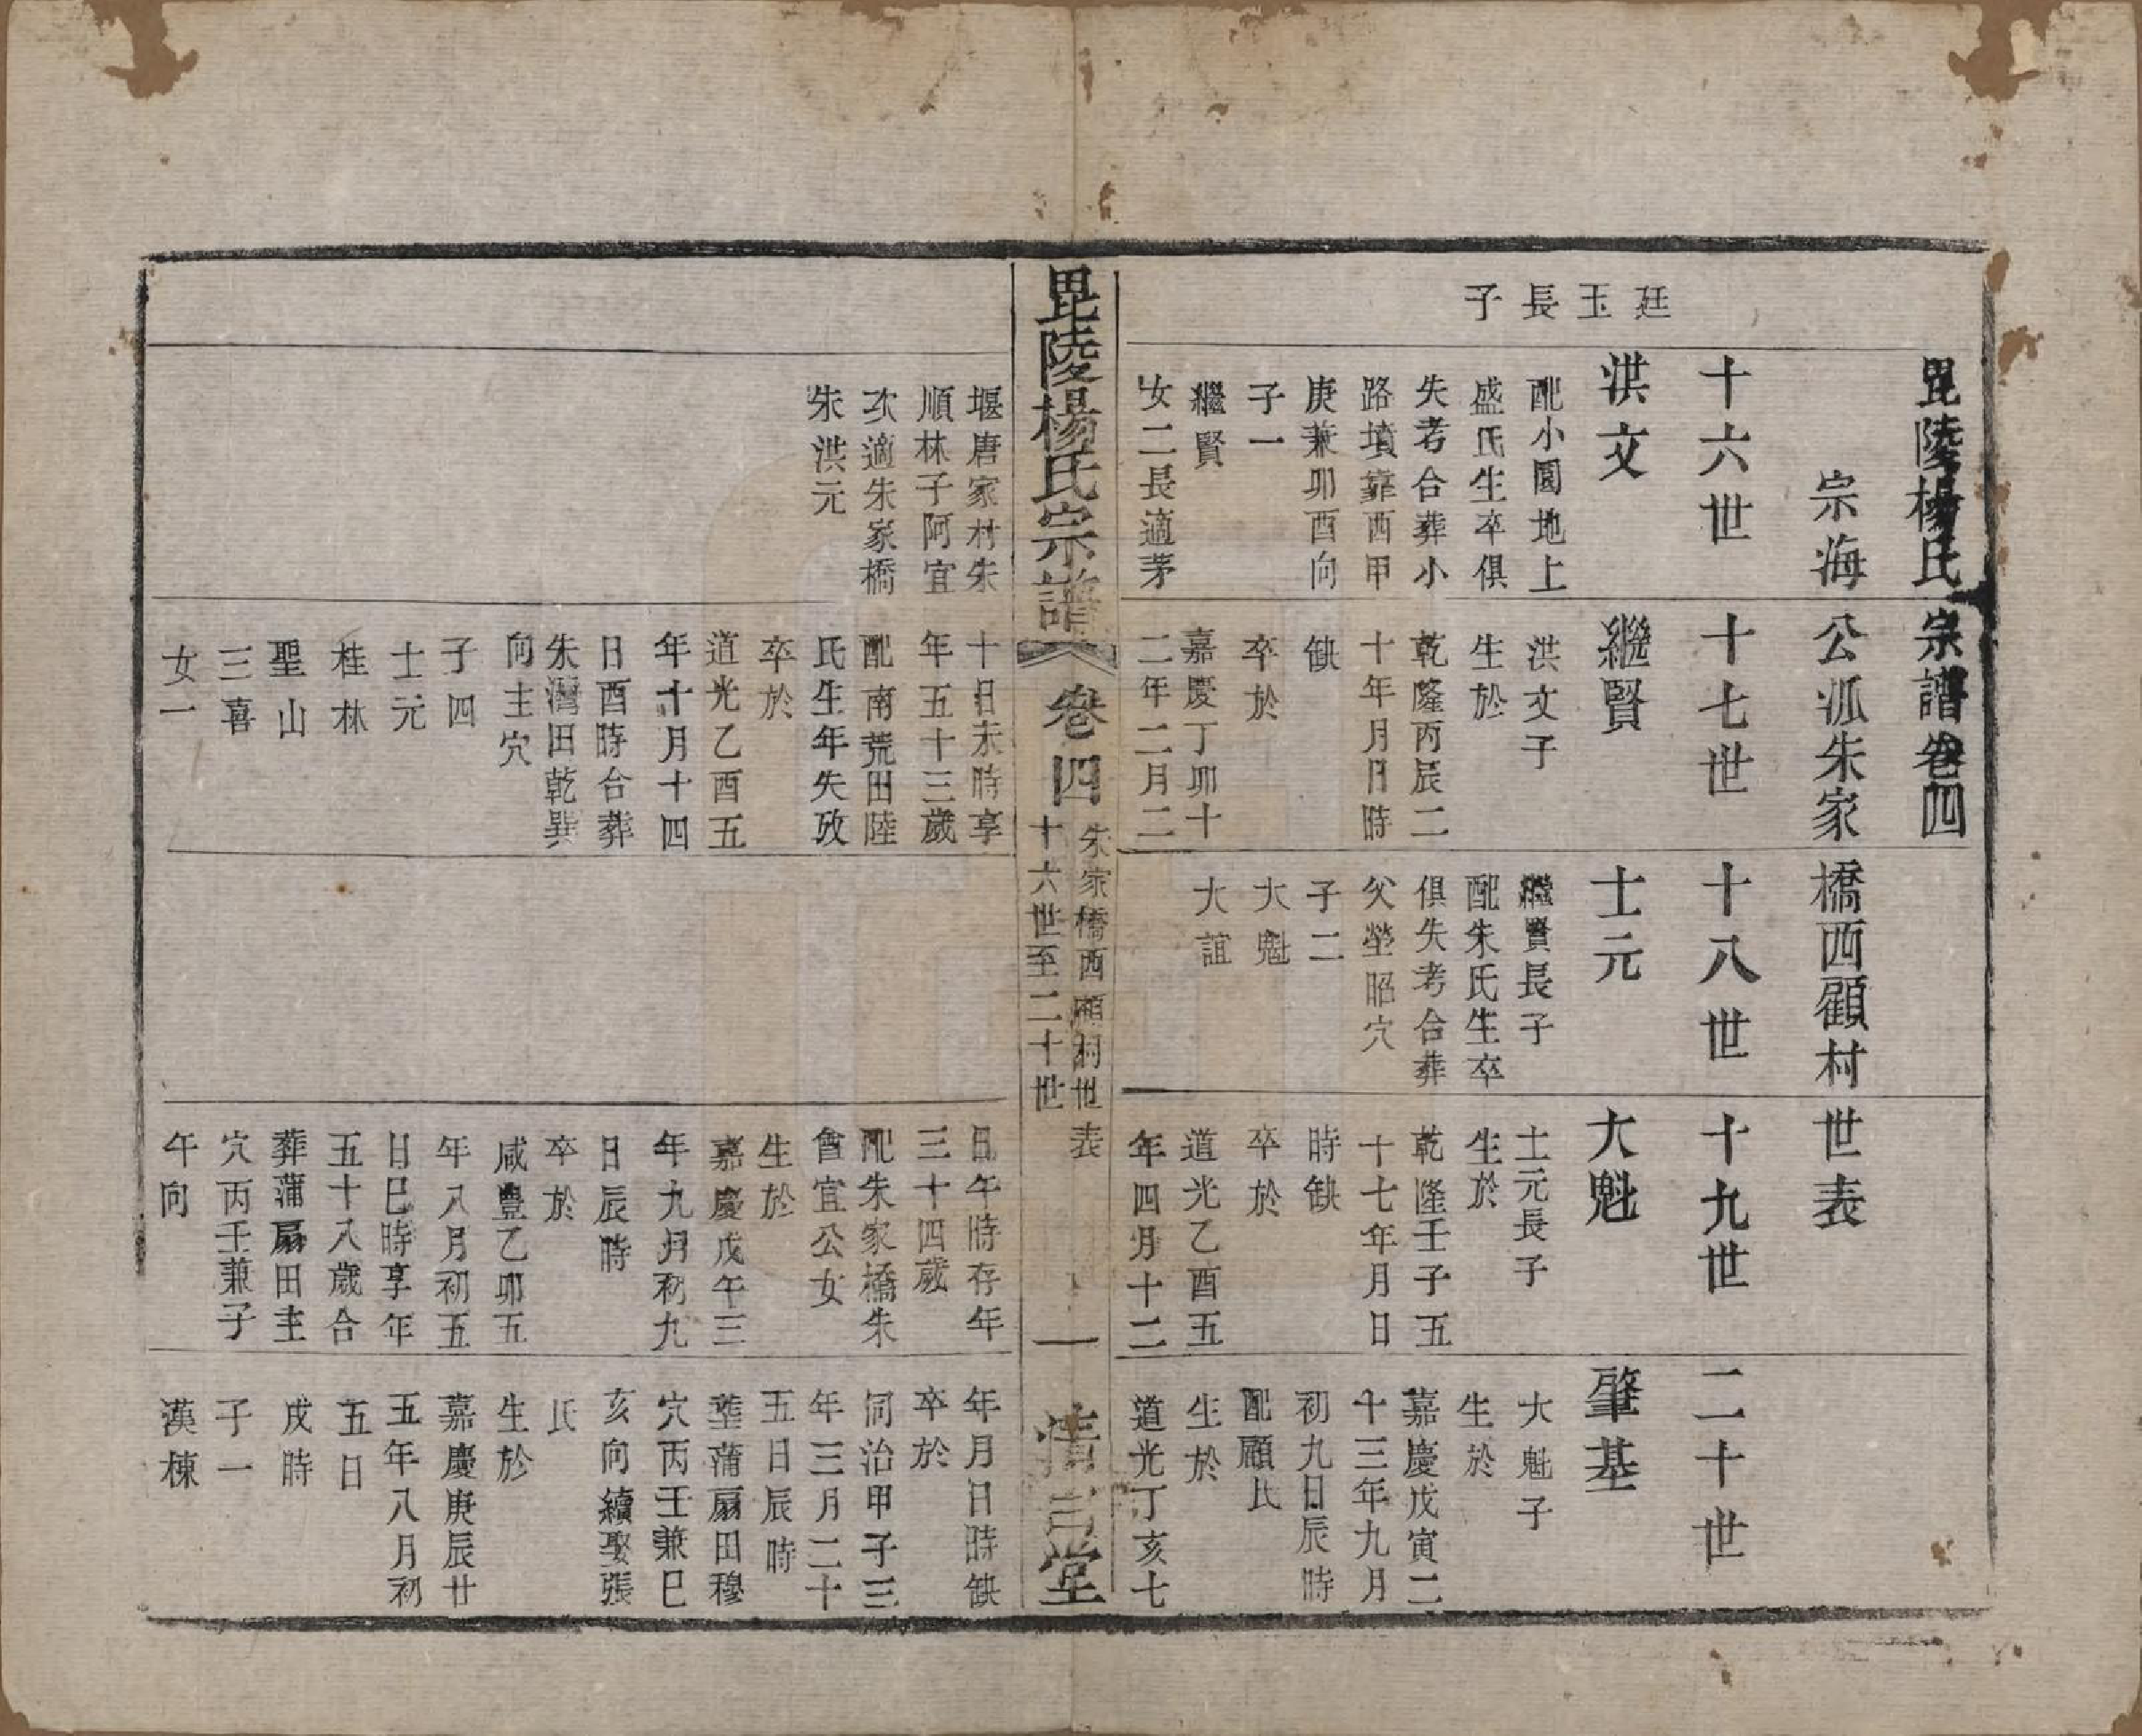 毘陵楊氏宗譜卷四
宗海公派朱家橋西顧村世表
廷玉長子
十六世
洪文
配小園地上
盛氏生卒俱
失考合葬小
路墳靠西甲
庚兼卯酉向
子一
繼賢
女二長適茅
堰唐家村朱
順林子阿宜
次適朱家橋
朱洪元
十七世
繼賢
洪文子
生於
乾隆丙辰二
十年月日時
缺
卒於
嘉慶丁卯十
二年二月二
十日未時享
年五十三歲
配南荒田陸
氏生年失攷
卒於
道光乙酉五
年十月十四
日酉時合葬
朱灣田乾巽
向主穴
子四
士元
桂林
聖山
三喜
女一
十八世
士元
繼賢長子
配朱氏生卒
俱失考合葬
父塋昭穴
子二
大魁
大誼
十九世
大魁
士元長子
生於
乾隆壬子五
十七年月日
時缺
卒於
道光乙酉五
年四月十二
日午時存年
三十四歲
配朱家橋朱
會宜公女
生於
嘉慶戊午三
年九月初九
日辰時
卒於
咸豐乙卯五
年八月初五
日巳時享年
五十八歲合
葬蒲扇田主
穴丙壬兼子
午向
二十世
肇基
大魁子
生於
嘉慶戊寅二
十三年九月
初九日辰時
配顧氏
生於
道光丁亥七
年月日時缺
卒於
同治甲子三
年三月二十
五日辰時
塟蒲扇田穆
穴丙壬兼巳
亥向續娶張
氏
生於
嘉慶庚辰廿
五年八月初
五日
戌時
子一
漢棟
毘陵楊氏宗譜
卷四
朱家橋西顧村世表
十六世至二十世
一
堂